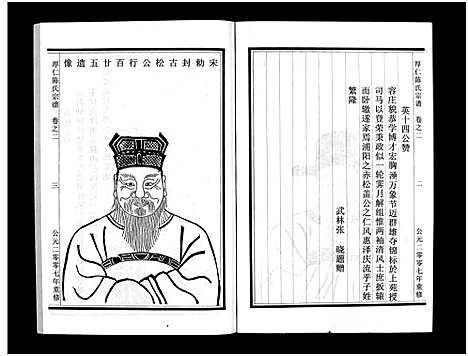 厚仁陈氏宗谱 卷之二 二 公元二〇〇七年重修
英十四公赞
容庄貌恭学博才宏胸澡万象节迈群雄夺锦标於上苑授
司马以登荣秉政似一轮霁月解组惟两袖清风士庶扳辕
而卧辙遂家焉浦阳之赤松盖公之仁风惠泽庆流乎子姓
繁隆
武林张 晓题赠
宋勅封古松公行百廿五遺像
厚仁陈氏宗谱 卷之二 三 公元二〇〇七年重修